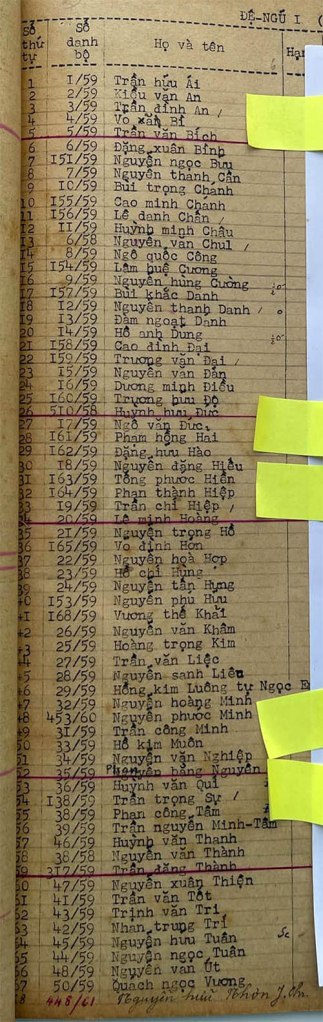 ĐỆ-NGŨ I (
Số thứ tự Số danh bộ Họ và tên Hạn
1 I/59 Trần hữu Ái
2 2/59 Kiều văn An
3 3/59 Trần đình An /
4 4/59 Võ văn Bỉ
5 5/59 Trần văn Bích
6 6/59 Đặng xuân Bỉnh
7 I5I/59 Nguyễn ngọc Bửu
8 7/59 Nguyễn thanh Cần
9 IO/59 Bùi trọng Chánh
10 I55/59 Cao minh Chánh
11 I56/59 Lê danh Chấn /
I2 II/59 Huỳnh minh Châu
I3 6/58 Nguyễn văn Chul /
I4 8/59 Ngô quốc Công
I5 I54/59 Lâm huệ Cương
I6 9/59 Nguyễn hùng Cường
I7 I57/59 Bùi khắc Danh
I8 I2/59 Nguyễn thanh Danh / o
I9 I3/59 Đàm ngoạt Danh
20 I4/59 Hồ anh Dũng
2I I58/59 Cao đình Đại
22 I59/59 Trương văn Đại /
23 I5/59 Nguyễn văn Đản
24 I6/59 Dương minh Điểu
25 I60/59 Trương hữu Độ
26 5I0/58 Huỳnh hữu Đức
27 I7/59 Ngô văn Đức
28 I6I/59 Phạm hồng Hải
29 I62/59 Đặng hữu Hào
30 I8/59 Nguyễn đăng Hiếu
3I I63/59 Tống phước Hiển
32 I64/59 Phan thành Hiệp
33 I9/59 Trần chí Hiệp /
34 20/59 Lê minh Hoàng
35 2I/59 Nguyễn trọng Hổ
36 I65/59 Võ đình Hơn
37 22/59 Nguyễn hoà Hợp
38 23/59 Hồ chí Hưng
39 24/59 Nguyễn tấn Hưng
40 I53/59 Nguyễn phú Hữu
4I I68/59 Vương thế Khải
42 26/59 Nguyễn văn Khâm
43 25/59 Hoàng trọng Kim
44 27/59 Trần văn Liệc
45 28/59 Nguyễn sanh Liêu
46 29/59 Hồng kim Luông tự Ngọc E
47 32/59 Nguyễn hoàng Minh
48 453/60 Nguyễn phước Minh
49 3I/59 Trần công Minh
50 33/59 Hồ kim Muôn
5I 34/59 Nguyễn văn Nghiệp
52 35/59 Phan bằng Nguyên
53 36/59 Huỳnh văn Quí
54 I38/59 Trần trọng Sự /
55 38/59 Phan công Tâm
56 39/59 Trần nguyên Minh-Tâm
57 46/59 Huỳnh văn Thanh
58 38/58 Nguyễn văn Thành
59 3I7/59 Trần đăng Thành
60 47/59 Nguyễn xuân Thiện
6I 4I/59 Trần văn Tốt
62 43/59 Trịnh văn Trí
63 42/59 Nhan trung Trí
64 45/59 Nguyễn hữu Tuấn Sc
65 44/59 Nguyễn ngọc Tuấn
66 48/59 Nguyễn văn Út
67 50/59 Quách ngọc Vương
68 448/61 Nguyễn hữu Nhơn